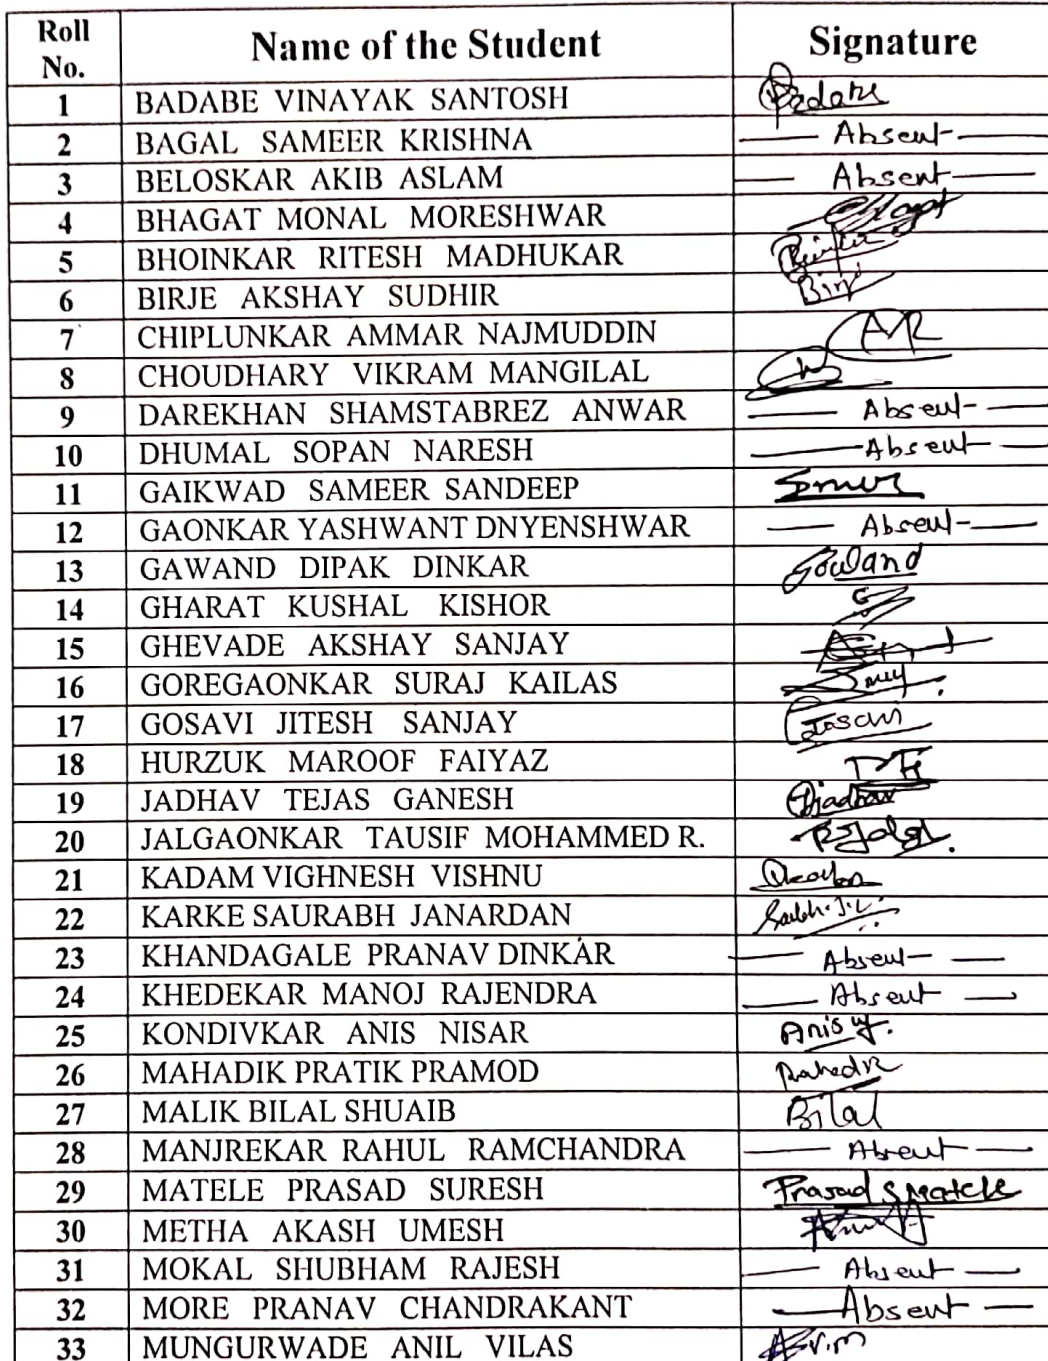 Roll No. Name of the Student Signature
1 BADABE VINAYAK SANTOSH
2 BAGAL SAMEER KRISHNA Absent
3 BELOSKAR AKIB ASLAM Absent
4 BHAGAT MONAL MORESHWAR
5 BHOINKAR RITESH MADHUKAR
6 BIRJE AKSHAY SUDHIR
7 CHIPLUNKAR AMMAR NAJMUDDIN
8 CHOUDHARY VIKRAM MANGILAL
9 DAREKHAN SHAMSTABREZ ANWAR Absent
10 DHUMAL SOPAN NARESH Absent
11 GAIKWAD SAMEER SANDEEP
12 GAONKAR YASHWANT DNYENSHWAR Absent
13 GAWAND DIPAK DINKAR
14 GHARAT KUSHAL KISHOR
15 GHEVADE AKSHAY SANJAY
16 GOREGAONKAR SURAJ KAILAS
17 GOSAVI JITESH SANJAY
18 HURZUK MAROOF FAIYAZ
19 JADHAV TEJAS GANESH
20 JALGAONKAR TAUSIF MOHAMMED R.
21 KADAM VIGHNESH VISHNU
22 KARKE SAURABH JANARDAN
23 KHANDAGALE PRANAV DINKAR Absent
24 KHEDEKAR MANOJ RAJENDRA Absent
25 KONDIVKAR ANIS NISAR Anis
26 MAHADIK PRATIK PRAMOD
27 MALIK BILAL SHUAIB Bilal
28 MANJREKAR RAHUL RAMCHANDRA Absent
29 MATELE PRASAD SURESH Prasad S Matele
30 METHA AKASH UMESH
31 MOKAL SHUBHAM RAJESH Absent
32 MORE PRANAV CHANDRAKANT Absent
33 MUNGURWADE ANIL VILAS